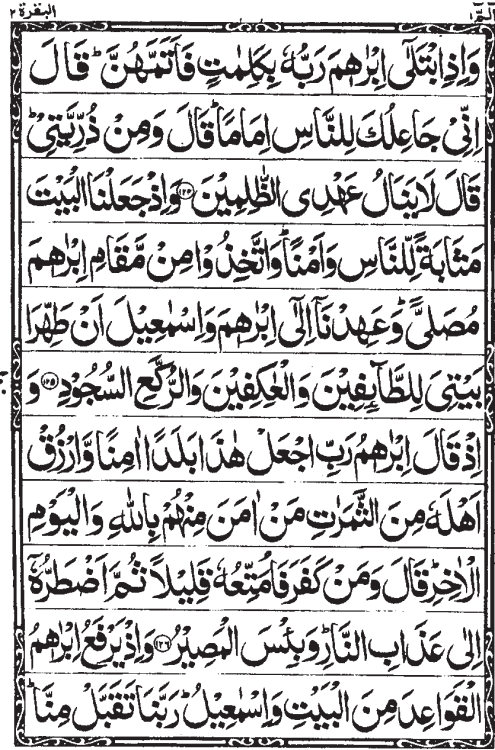 الٓمّٓ ١
البقرة ٢
وَاِذِ ابْتَلٰٓى اِبْرٰهٖمَ رَبُّهٗ بِكَلِمٰتٍ فَاَتَمَّهُنَّ ؕ قَالَ
اِنِّىْ جَاعِلُكَ لِلنَّاسِ اِمَامًا ؕ قَالَ وَمِنْ ذُرِّيَّتِىْ ؕ
قَالَ لَا يَنَالُ عَهْدِى الظّٰلِمِيْنَ ﴿۱۲۴﴾ وَاِذْ جَعَلْنَا الْبَيْتَ
مَثَابَةً لِّلنَّاسِ وَاَمْنًا ؕ وَاتَّخِذُوْا مِنْ مَّقَامِ اِبْرٰهٖمَ
مُصَلًّى ؕ وَعَهِدْنَآ اِلٰٓى اِبْرٰهٖمَ وَاِسْمٰعِيْلَ اَنْ طَهِّرَا
بَيْتِىَ لِلطَّآئِفِيْنَ وَالْعٰكِفِيْنَ وَالرُّكَّعِ السُّجُوْدِ ﴿۱۲۵﴾ وَ
اِذْ قَالَ اِبْرٰهٖمُ رَبِّ اجْعَلْ هٰذَا بَلَدًا اٰمِنًا وَّارْزُقْ
اَهْلَهٗ مِنَ الثَّمَرٰتِ مَنْ اٰمَنَ مِنْهُمْ بِاللّٰهِ وَالْيَوْمِ
الْاٰخِرِ ؕ قَالَ وَمَنْ كَفَرَ فَاُمَتِّعُهٗ قَلِيْلًا ثُمَّ اَضْطَرُّهٗٓ
اِلٰى عَذَابِ النَّارِ ؕ وَبِئْسَ الْمَصِيْرُ ﴿۱۲۶﴾ وَاِذْ يَرْفَعُ اِبْرٰهٖمُ
الْقَوَاعِدَ مِنَ الْبَيْتِ وَاِسْمٰعِيْلُ ؕ رَبَّنَا تَقَبَّلْ مِنَّا ؕ